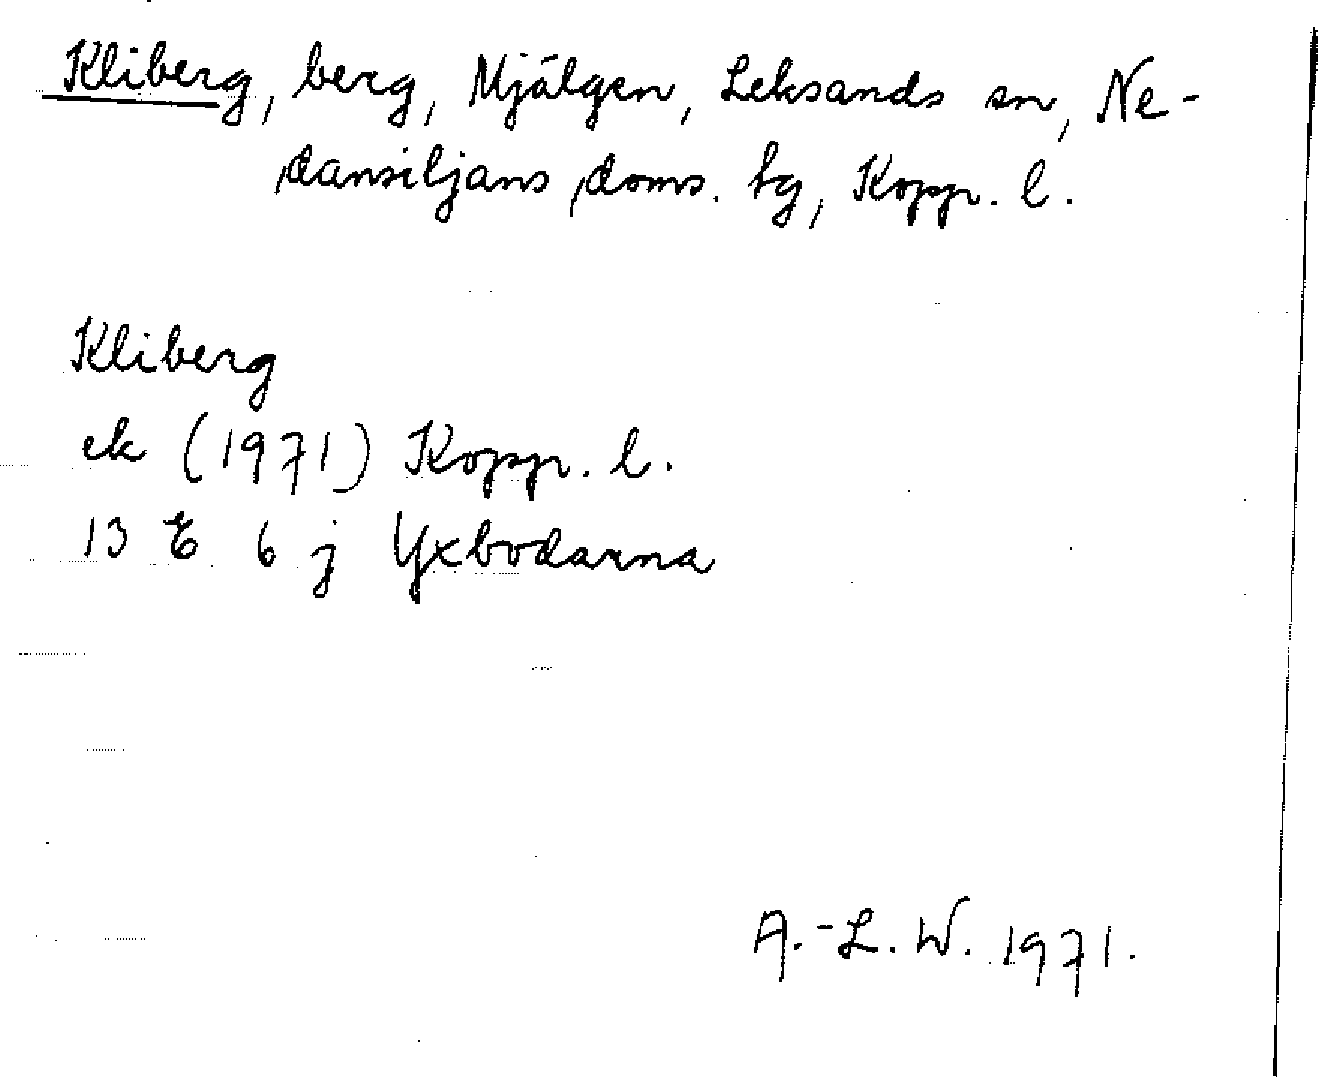 Kliberg, berg, Mjälgen, Leksands sn, Ne-
dansiljans doms. tg, Kopp. l.
Kliberg
ek (1971) Kopp. l.
13 E 6 j Yxbodarna
A.-L. W. 1971.